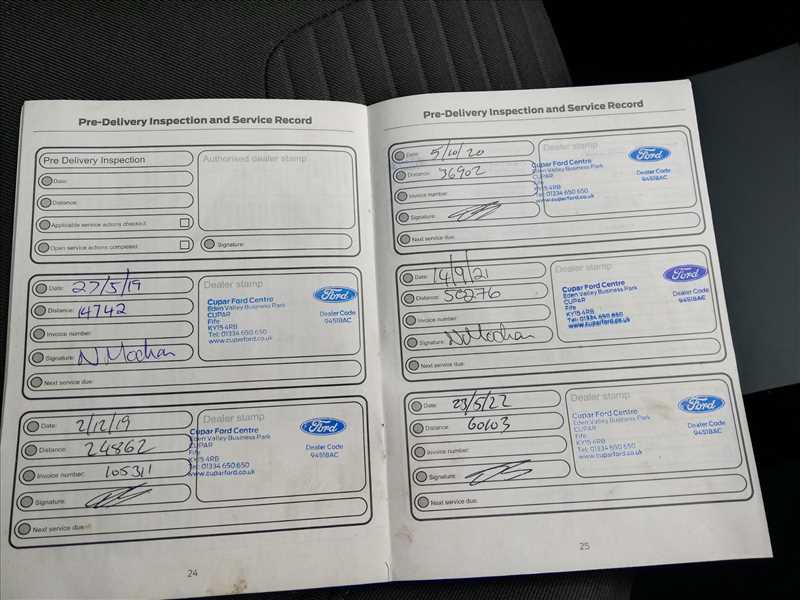 Pre-Delivery Inspection and Service Record
Pre Delivery Inspection
Authorised dealer stamp
Date:
Distance:
Applicable service actions checked:
Open service actions completed:
Signature:
Date: 27/5/19
Distance: 14742
Invoice number:
Signature: N Meehan
Next service due:
Dealer stamp
Cupar Ford Centre
Eden Valley Business Park
CUPAR
Fife
KY15 4RB
Tel: 01334 650 650
www.cuparford.co.uk
Ford
Dealer Code
94518AC
Date: 2/12/19
Distance: 24862
Invoice number: 105311
Signature:
Next service due:
Dealer stamp
Cupar Ford Centre
Eden Valley Business Park
CUPAR
Fife
KY15 4RB
Tel: 01334 650 650
www.cuparford.co.uk
Ford
Dealer Code
94518AC
24
Pre-Delivery Inspection and Service Record
Date: 5/10/20
Distance: 36902
Invoice number:
Signature:
Next service due:
Dealer stamp
Cupar Ford Centre
Eden Valley Business Park
CUPAR
Fife
KY15 4RB
Tel: 01334 650 650
www.cuparford.co.uk
Ford
Dealer Code
94518AC
Date: 14/9/21
Distance:
Invoice number:
Signature: N Meehan
Next service due:
Dealer stamp
Cupar Ford Centre
Eden Valley Business Park
CUPAR
Fife
KY15 4RB
Tel: 01334 650 650
www.cuparford.co.uk
Ford
Dealer Code
94518AC
Date: 23/5/22
Distance: 60103
Invoice number:
Signature:
Next service due:
Dealer stamp
Cupar Ford Centre
Eden Valley Business Park
CUPAR
Fife
KY15 4RB
Tel: 01334 650 650
www.cuparford.co.uk
Ford
Dealer Code
94518AC
25